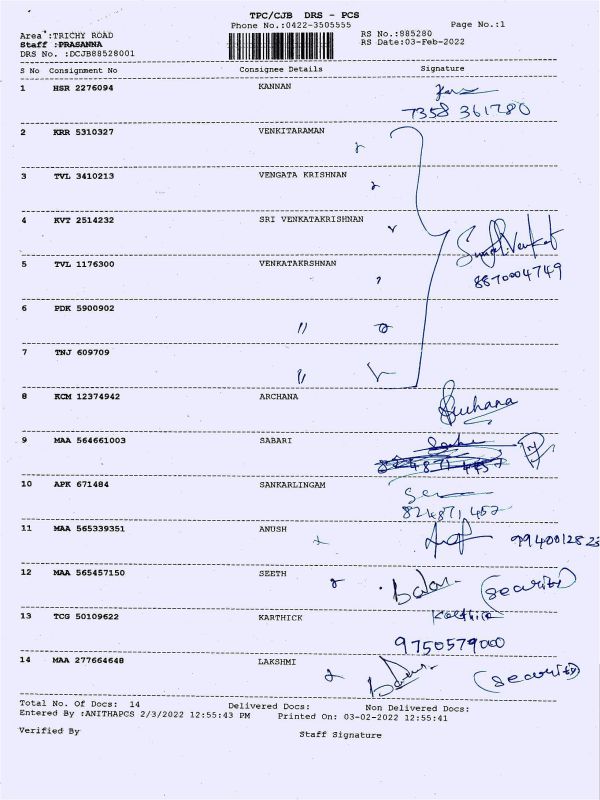 TPC/CJB DRS - PCS
Phone No.:0422-3505555 Page No.:1
Area :TRICHY ROAD RS No.:885280
Staff :PRASANNA RS Date:03-Feb-2022
DRS No. :DCJB88528001
S No Consignment No Consignee Details Signature
1 HSR 2276094 KANNAN
7358 361780
2 KRR 5310327 VENKITARAMAN
3 TVL 3410213 VENGATA KRISHNAN
4 KVT 2514232 SRI VENKATAKRISHNAN
5 TVL 1176300 VENKATAKRSHNAN
8870004749
6 PDK 5900902 "
7 TNJ 609709 "
8 KCM 12374942 ARCHANA
9 MAA 564661003 SABARI
10 APK 671484 SANKARLINGAM
824871 452
11 MAA 565339351 ANUSH 9940012823
12 MAA 565457150 SEETH (security)
13 TCG 50109622 KARTHICK Karthick
9750579000
14 MAA 277664648 LAKSHMI (security)
Total No. Of Docs: 14 Delivered Docs: Non Delivered Docs:
Entered By :ANITHAPCS 2/3/2022 12:55:43 PM Printed On: 03-02-2022 12:55:41
Verified By Staff Signature